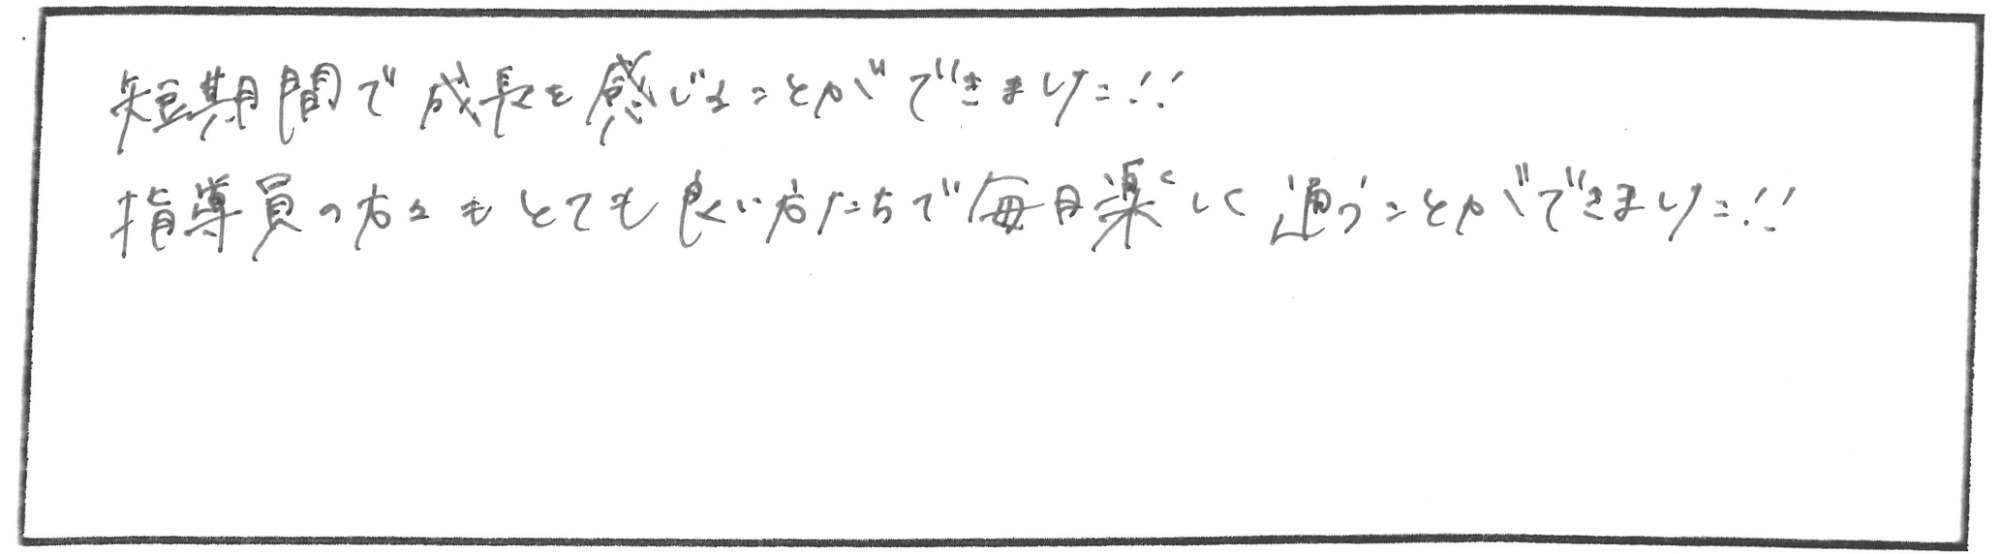 短期間で成長を感じることができました!!
指導員の方々もとても良い方たちで毎日楽しく通うことができました!!